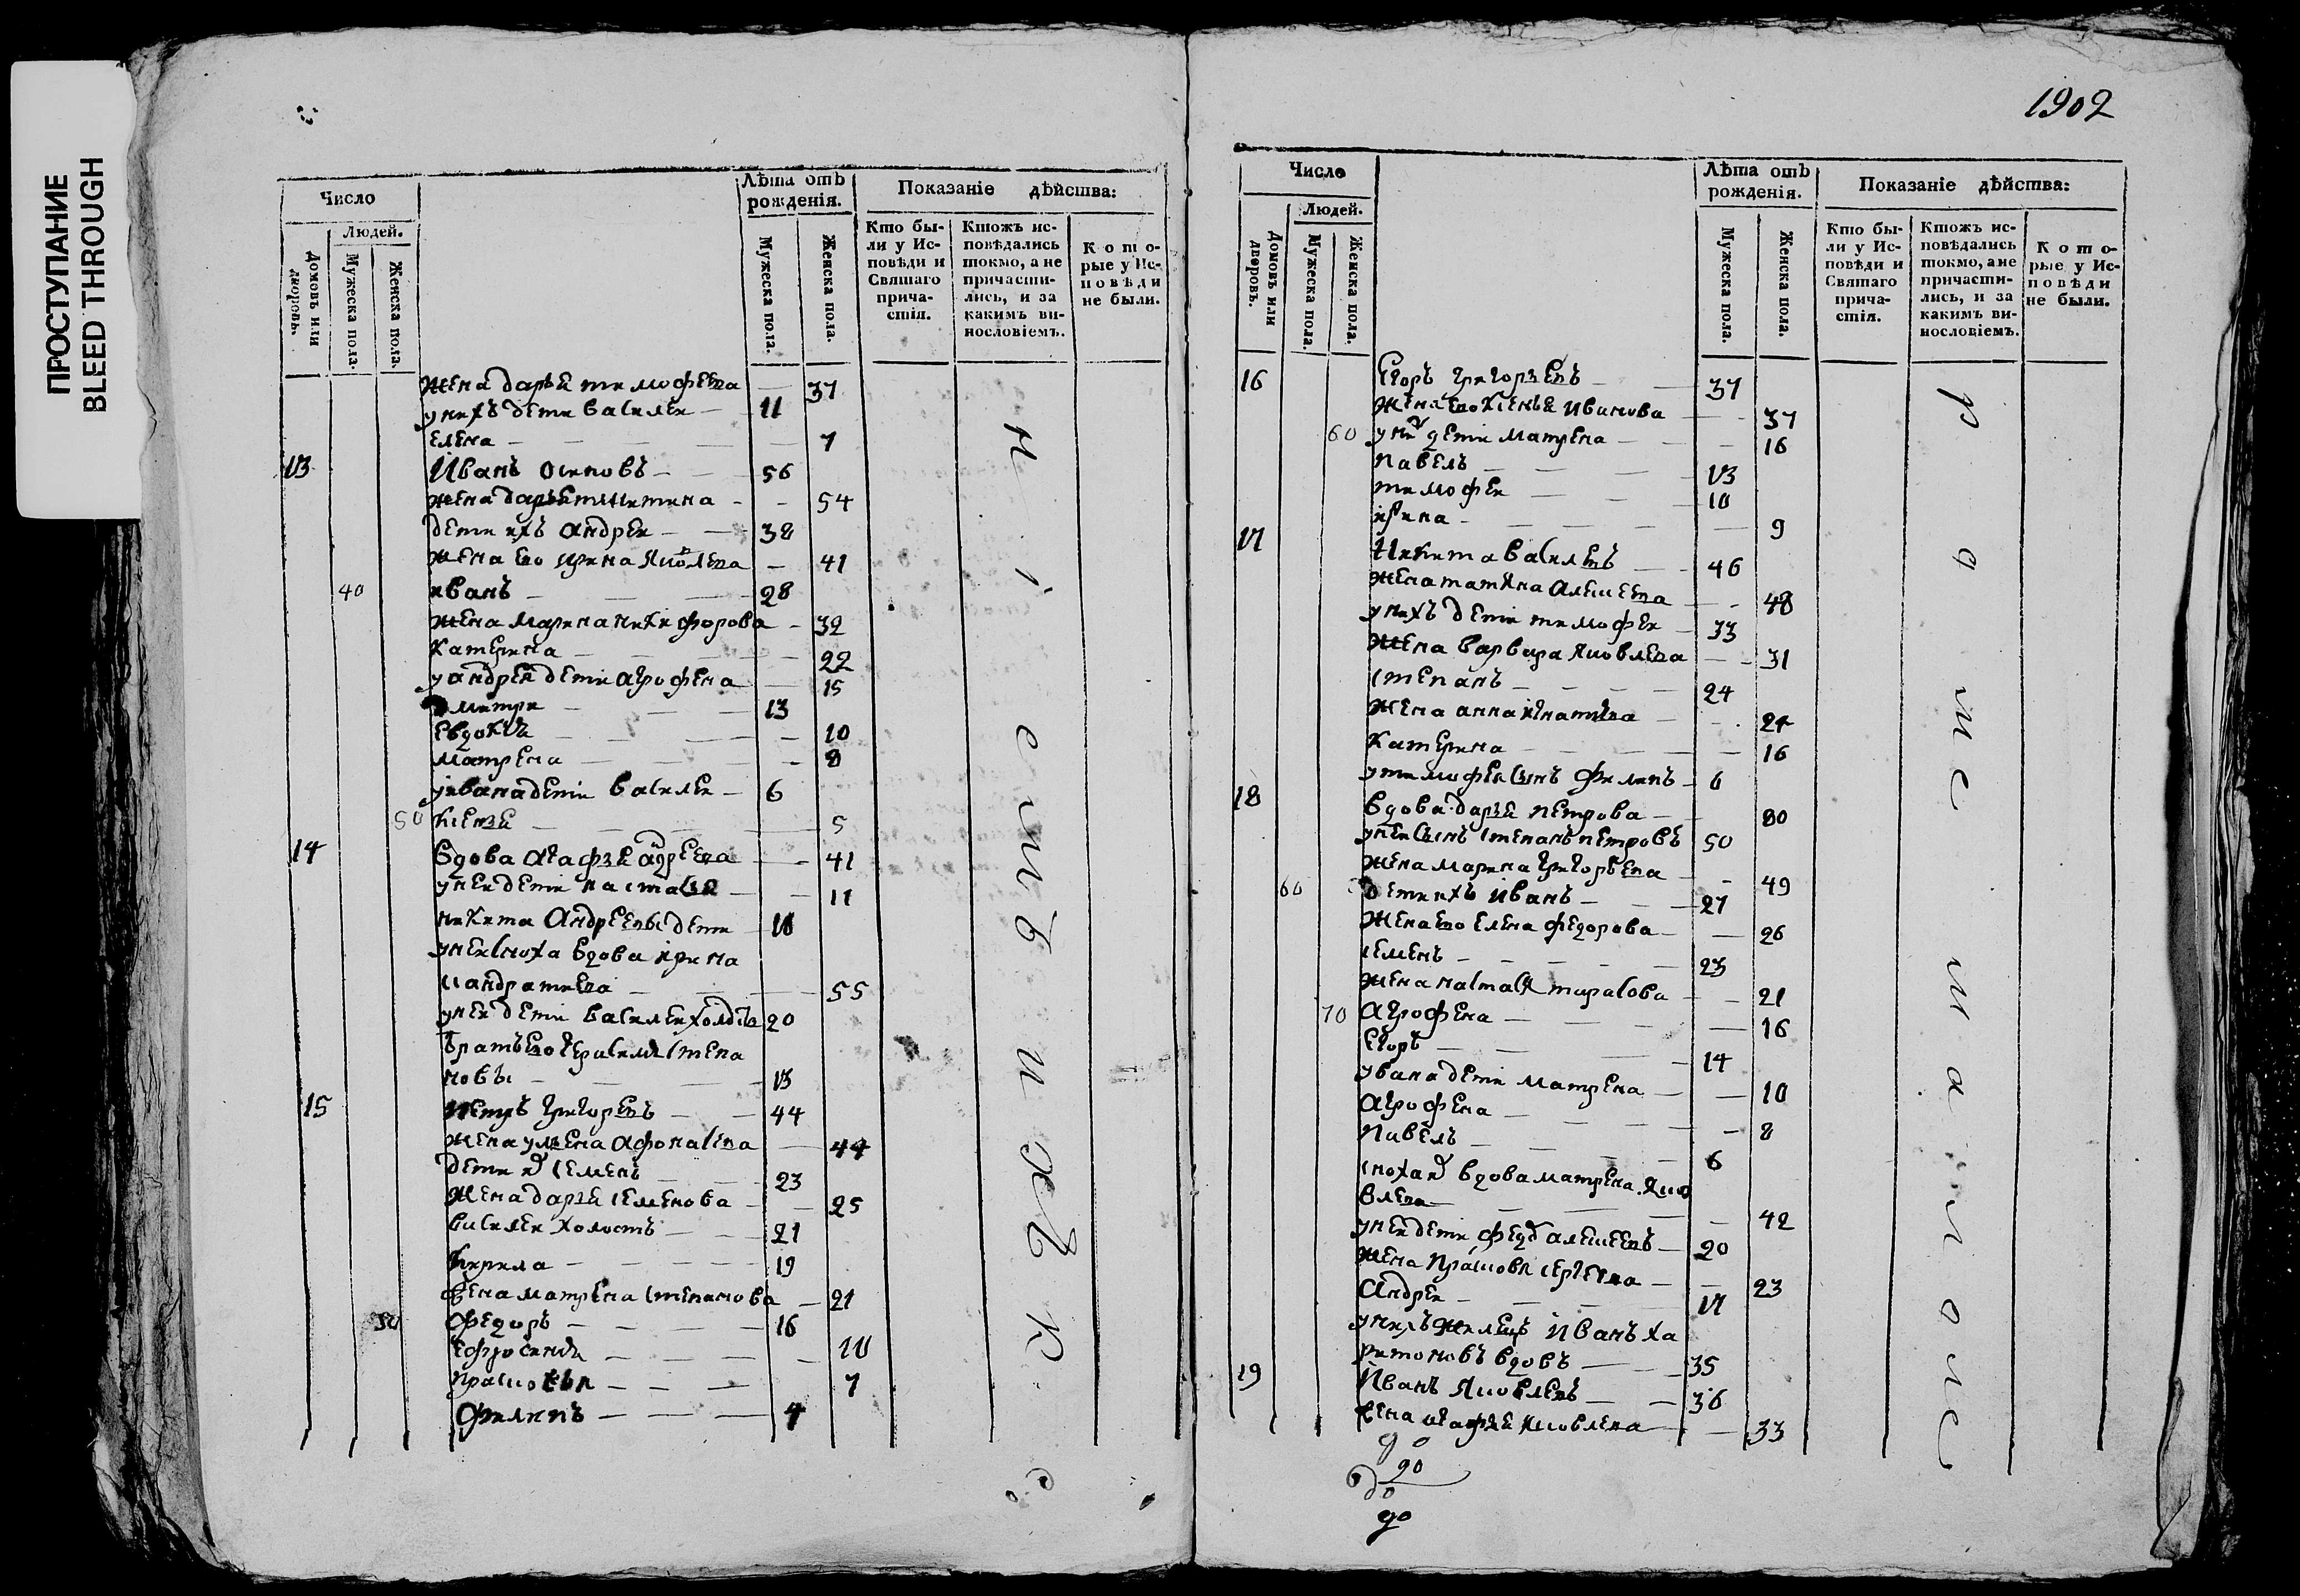 ПРОСТУПАНИЕ
BLEED THROUGH
Число
Людей.
Домовъ или дворовъ.
Мужеска пола.
Женска пола.
Лѣта отъ рожденія.
Мужеска пола.
Женска пола.
Показаніе дѣйства:
Кто бы-
ли у Ис-
повѣди и
Святаго
прича-
стія.
Ктожъ ис-
повѣдались
токмо, а не
причасти-
лись, и за
какимъ ви-
нословіемъ.
Кото-
рые у Ис-
повѣди
не были.
жена дарья тимофеева — 37
у нихъ дети василеи — 11
елена — 7
13 Иванъ осиповъ — 56
жена дарья — 54
дети ихъ андреи — 38
жена его ирина яковлева — 41
40 иванъ — 28
жена марина никифорова — 32
катерина — 22
у андрея дети агрофена 15
дмитри — 13
евдокия — 10
матрена — 8
у ивана дети василеи — 6
50 ксения — 5
14 вдова агафья андреева — 41
у неи дети настасья — 11
никита андреевы дети 10
у неи сноха вдова ирина
кандратиева — 55
у неи дети василеи холостъ 20
братъ его герасимъ степа
новы — 13
15 Петръ григоревъ — 44
жена ульена афонасева — 44
дети их семенъ — 23
жена дарья семенова — 25
василеи холостъ — 21
кирила — 19
жена матрена степанова — 21
50 федоръ — 16
ефросиния — 10
прасковья — 7
филипъ — 4
1902
Число
Людей.
Домовъ или дворовъ.
Мужеска пола.
Женска пола.
Лѣта отъ рожденія.
Мужеска пола.
Женска пола.
Показаніе дѣйства:
Кто бы-
ли у Ис-
повѣди и
Святаго
прича-
стія.
Ктожъ ис-
повѣдались
токмо, а не
причасти-
лись, и за
какимъ ви-
нословіемъ.
Кото-
рые у Ис-
повѣди
не были.
16 Егоръ григорьевъ — 37
жена его ксенья иванова — 37
60 у них дети матрена — 16
павелъ — 13
тимофеи — 10
ирина — 9
17 Никита василевъ — 46
жена татяна алексеева — 48
у нихъ дети тимофеи — 33
жена варвара яковлева — 31
степанъ — 24
жена анна игнатьева — 24
катерина — 16
у тимофея сынъ филипъ — 6
18 вдова дарья петрова — 80
у неи сынъ степанъ петровъ 50
жена марина григорьева — 49
60 дети ихъ иванъ — 27
жена его елена федорова — 26
семенъ — 23
жена настася тарасова — 21
70 агрофена — 16
егоръ — 14
у вана дети матрена — 10
агрофена — 8
павелъ — 6
сноха их вдова матрена яко
влева — 42
у неи дети алексеевъ — 20
жена прасковя сергеева — 23
андреи — 17
у нихъ иванъ ха
ритоновъ вдовъ — 35
19 Иванъ яковлевъ — 36
жена агафья яковлева — 33
90
90